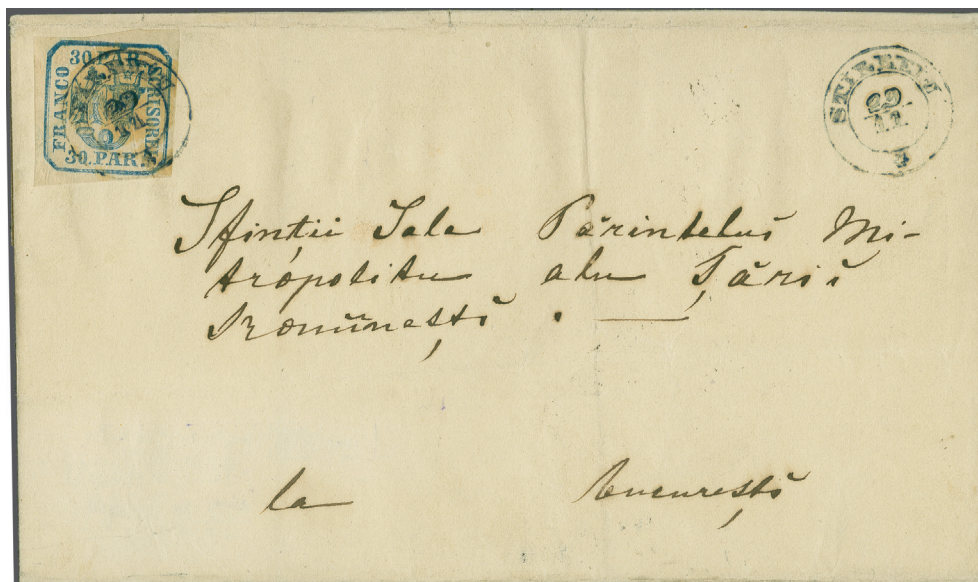 30.PAR.
FRANCO
30.PAR.
STIRBEIZ
22
11
Sfintii Sale Părinteluĭ Mi-
tropolitu alu Țăriĭ
Romŭneștĭ . —
la Bucureștĭ